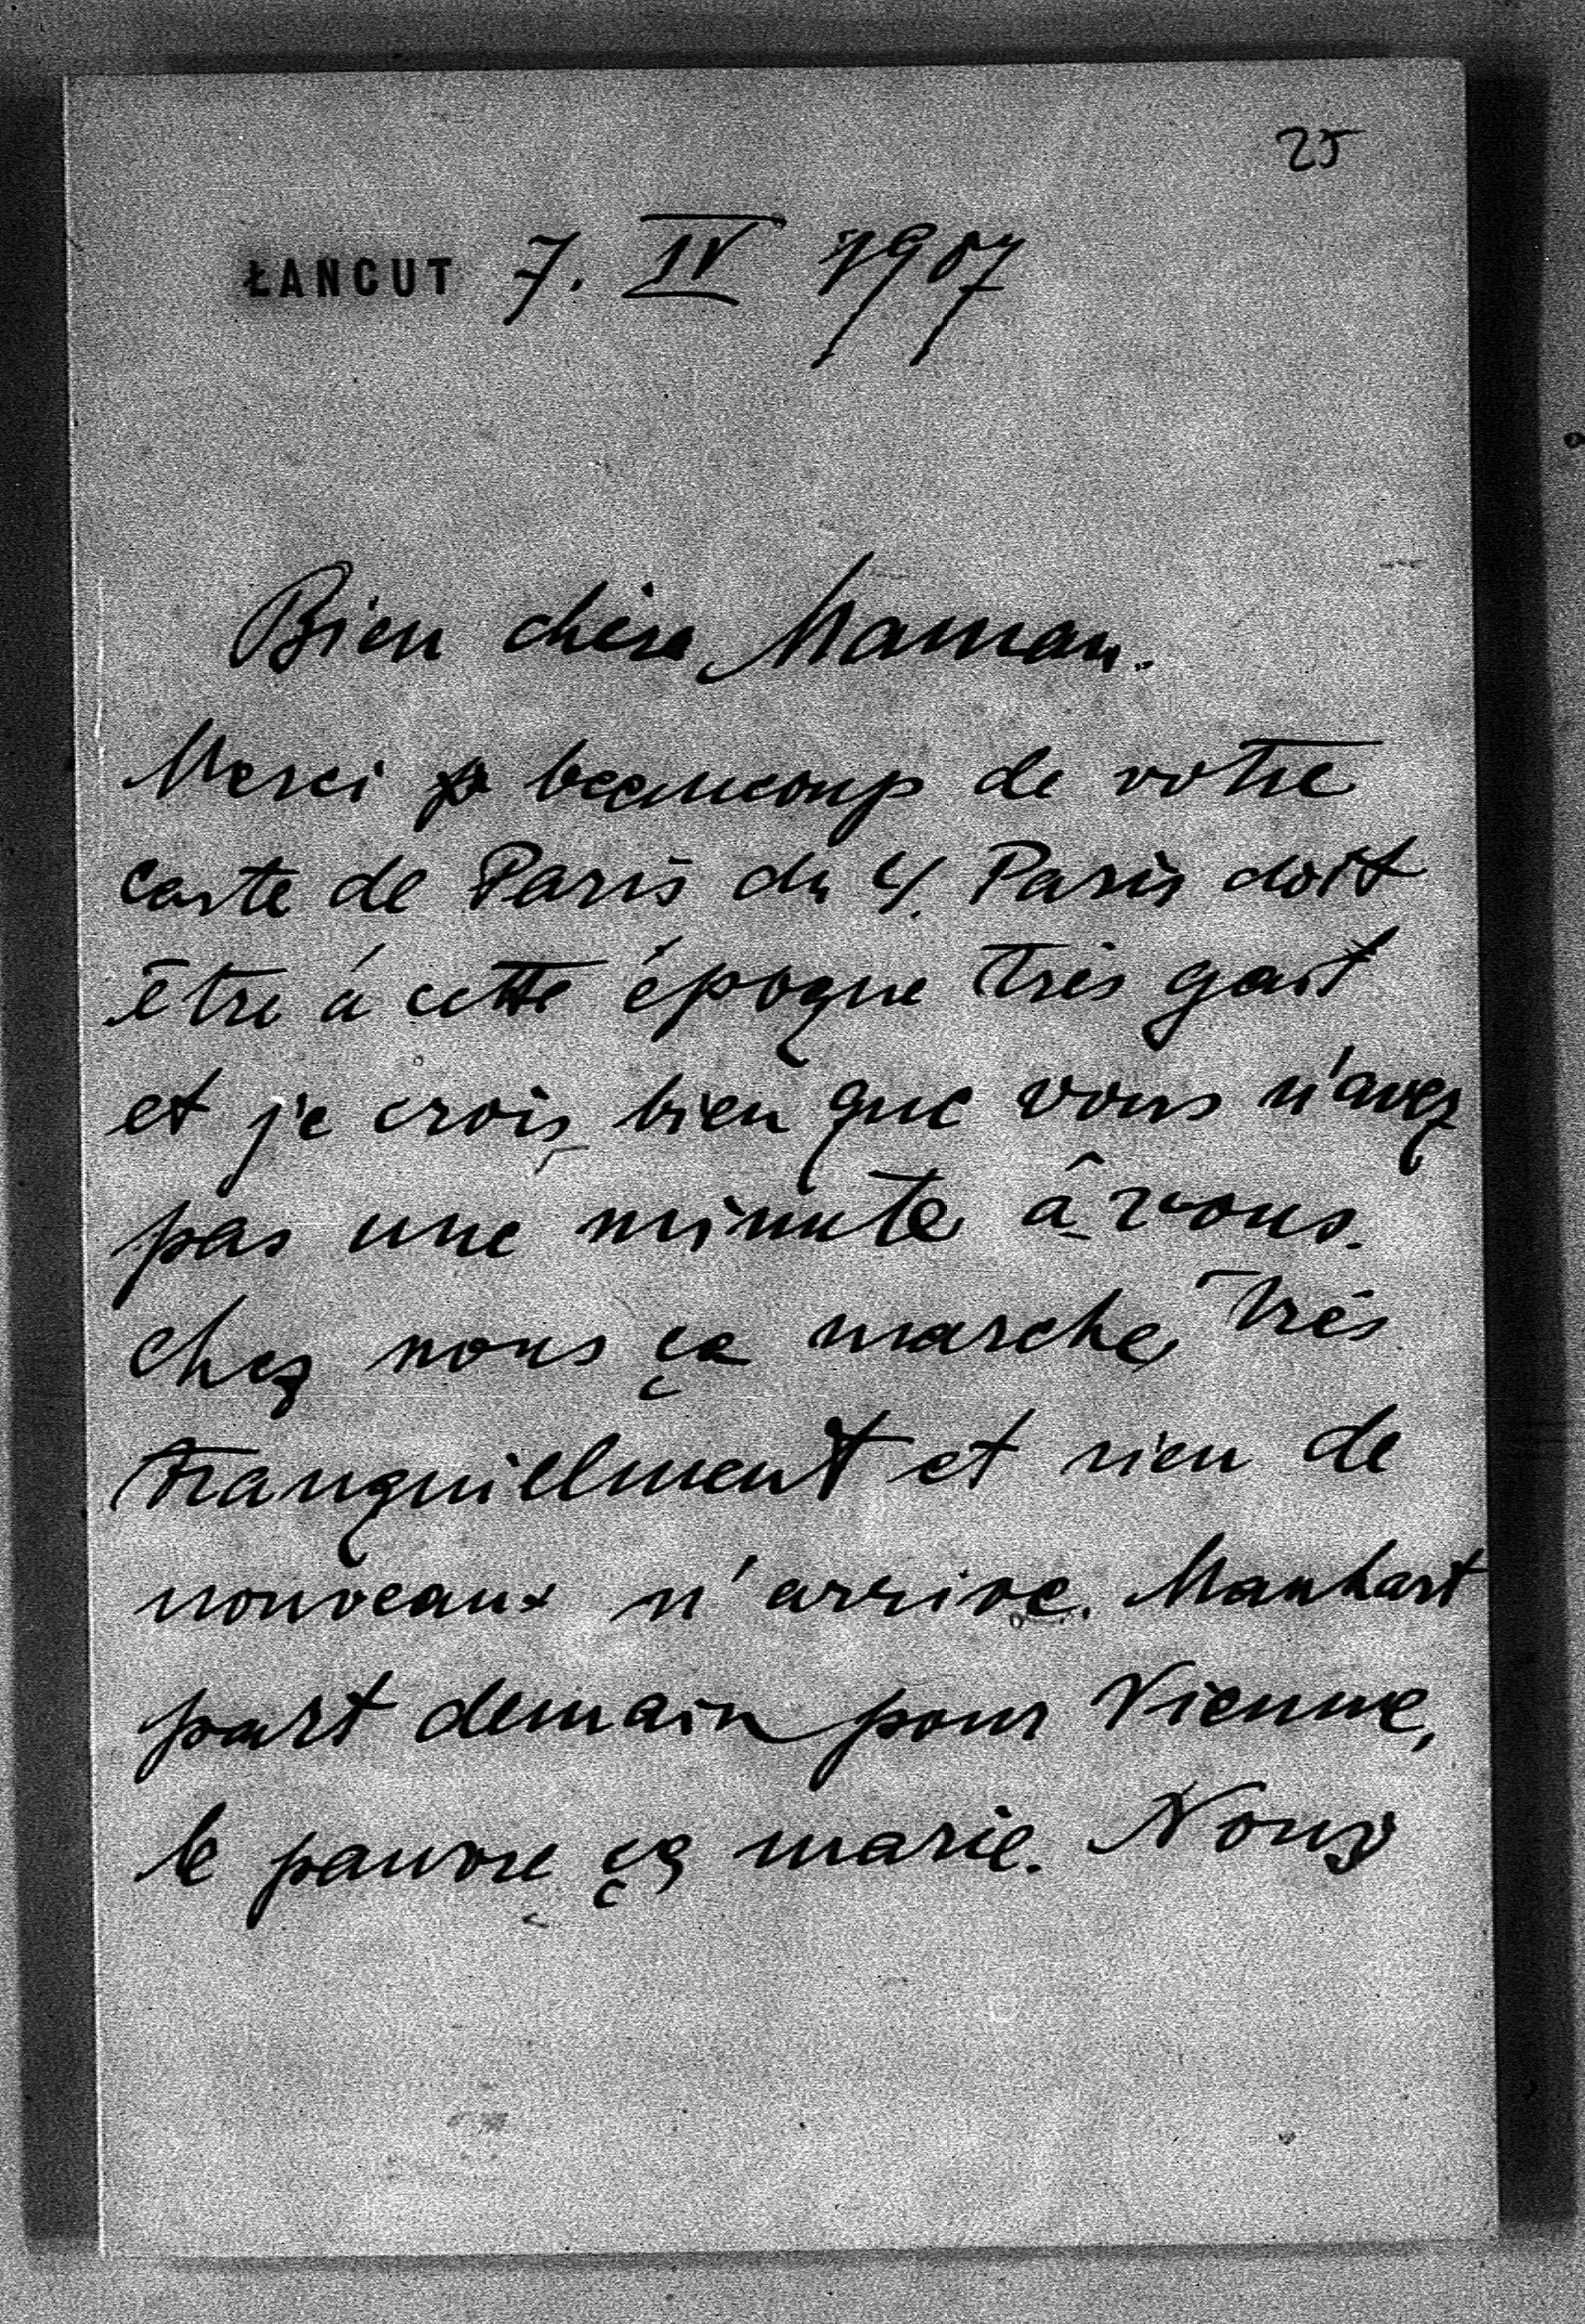 25
ŁANCUT 7. IV 1907
Bien chère Maman.
Merci beaucoup de votre
carte de Paris du 4. Paris doit
être á cette époque très gait
et je crois bien que vous n'avez
pas une minute â vous.
Chez nous ça marche très
tranquillment et rien de
nouveaux n'arrive. Manhart
part demain pour Vienne,
le pauvre ça marie. Nous